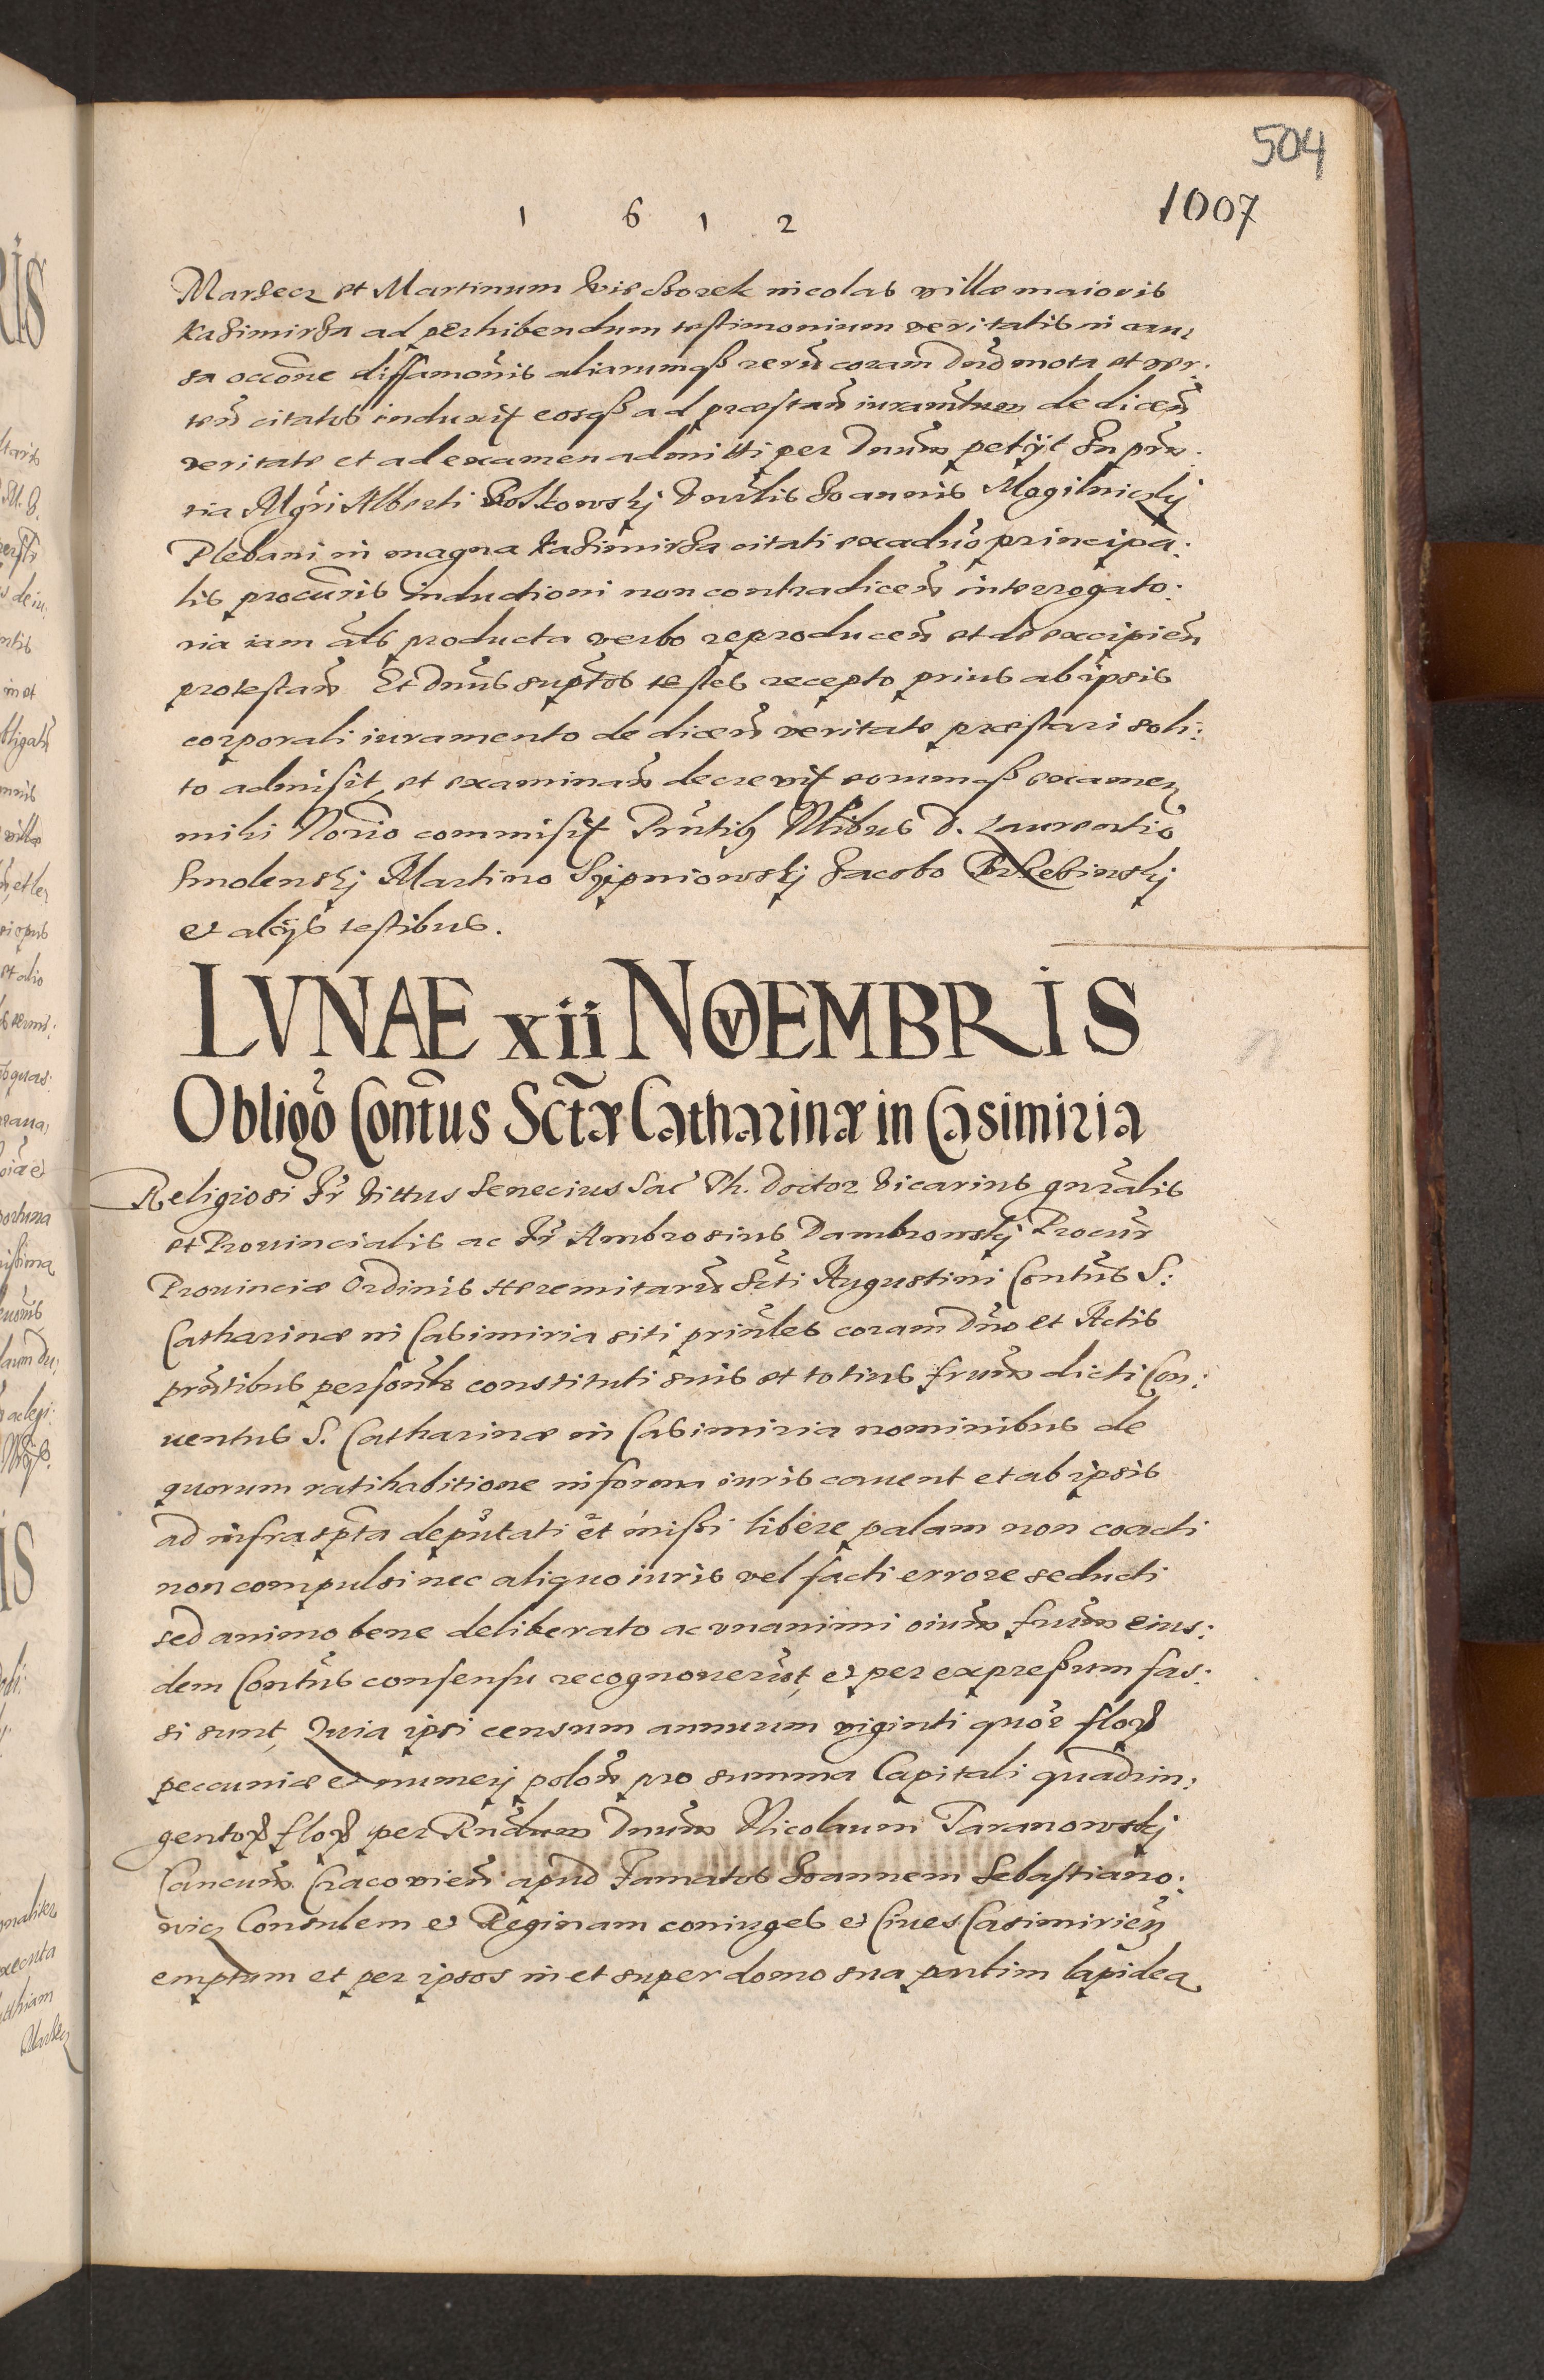 504
1007
1 6 1 2
Mardecz et Martinum incolas villæ maioris
Kazimirza ad perhibendum testimonium veritatis in cau,
sa occōne diffamōnis aliarumqß rerū coram Dnō mota et ver:
teñ citatos induxit eosqß ad præstañ iuramtum de diceñ
veritate et ad examen admitti per Dnum petÿt In prñ
tia Mgri Alberti Joannis Mogilniczkj
Plebani in magna Kazimirza citati ex aduo principa:
lis procuris inductioni non contradiceñ interrogato:
ria iam als producta verbo reproduceñ et de excipieñ
protestañ Et Dnus suptos testes recepto prius ab ipsis
corporali iuramento de diceñ veritate præstari soli:
to admisit, et examinañ decrevit eorumqß examen
mihi Norio commisit Prntibg Nlibus D. Laurentio
Smolenskj Martino Sgipniowskj Jacobo
et alijs testibus.
LVNAE xii NOVEMBRIS
Obligō Contus Sctæ Catharinæ in Casimiria
Religiosi Fr Vittus Senecius Sac Th. Doctor Vicarius gnralis
et Prouincialis ac Fr Ambrosius Dambrowskj Procur
Prouinciæ Ordinis Heremitarū Scti Augustini Contus S:
Catharinæ in Casimiria siti prinles coram Dno et Actis
prntibus personls constituti suis et totius frum dicti Con:
uentus S. Catharinæ in Casimiria nominibus de
quorum ratihabitione in forma iuris cauent et ab ipsis
ad infraspta deputati et missi libere palam non coacti
non compulsi nec aliquo iuris vel facti errore seducti
sed animo bene deliberato ac vnanimi oium frum eius:
dem Contus consensu recognouerut, et per expreßum fas:
si sunt, Quia ipsi censum annuum viginti quor flor
peccuniæ et numerj polon pro summa Capitali quadrin:
gentor flor per Rndum Dnum Nicolaum Taranowskj
Cancum Cracovien apud Famatos Joannem Sebastiano:
vicz Consulem et Reginam coniuges et Ciues Casimirien
emptum et per ipsos in et super domo sua partim lapidea